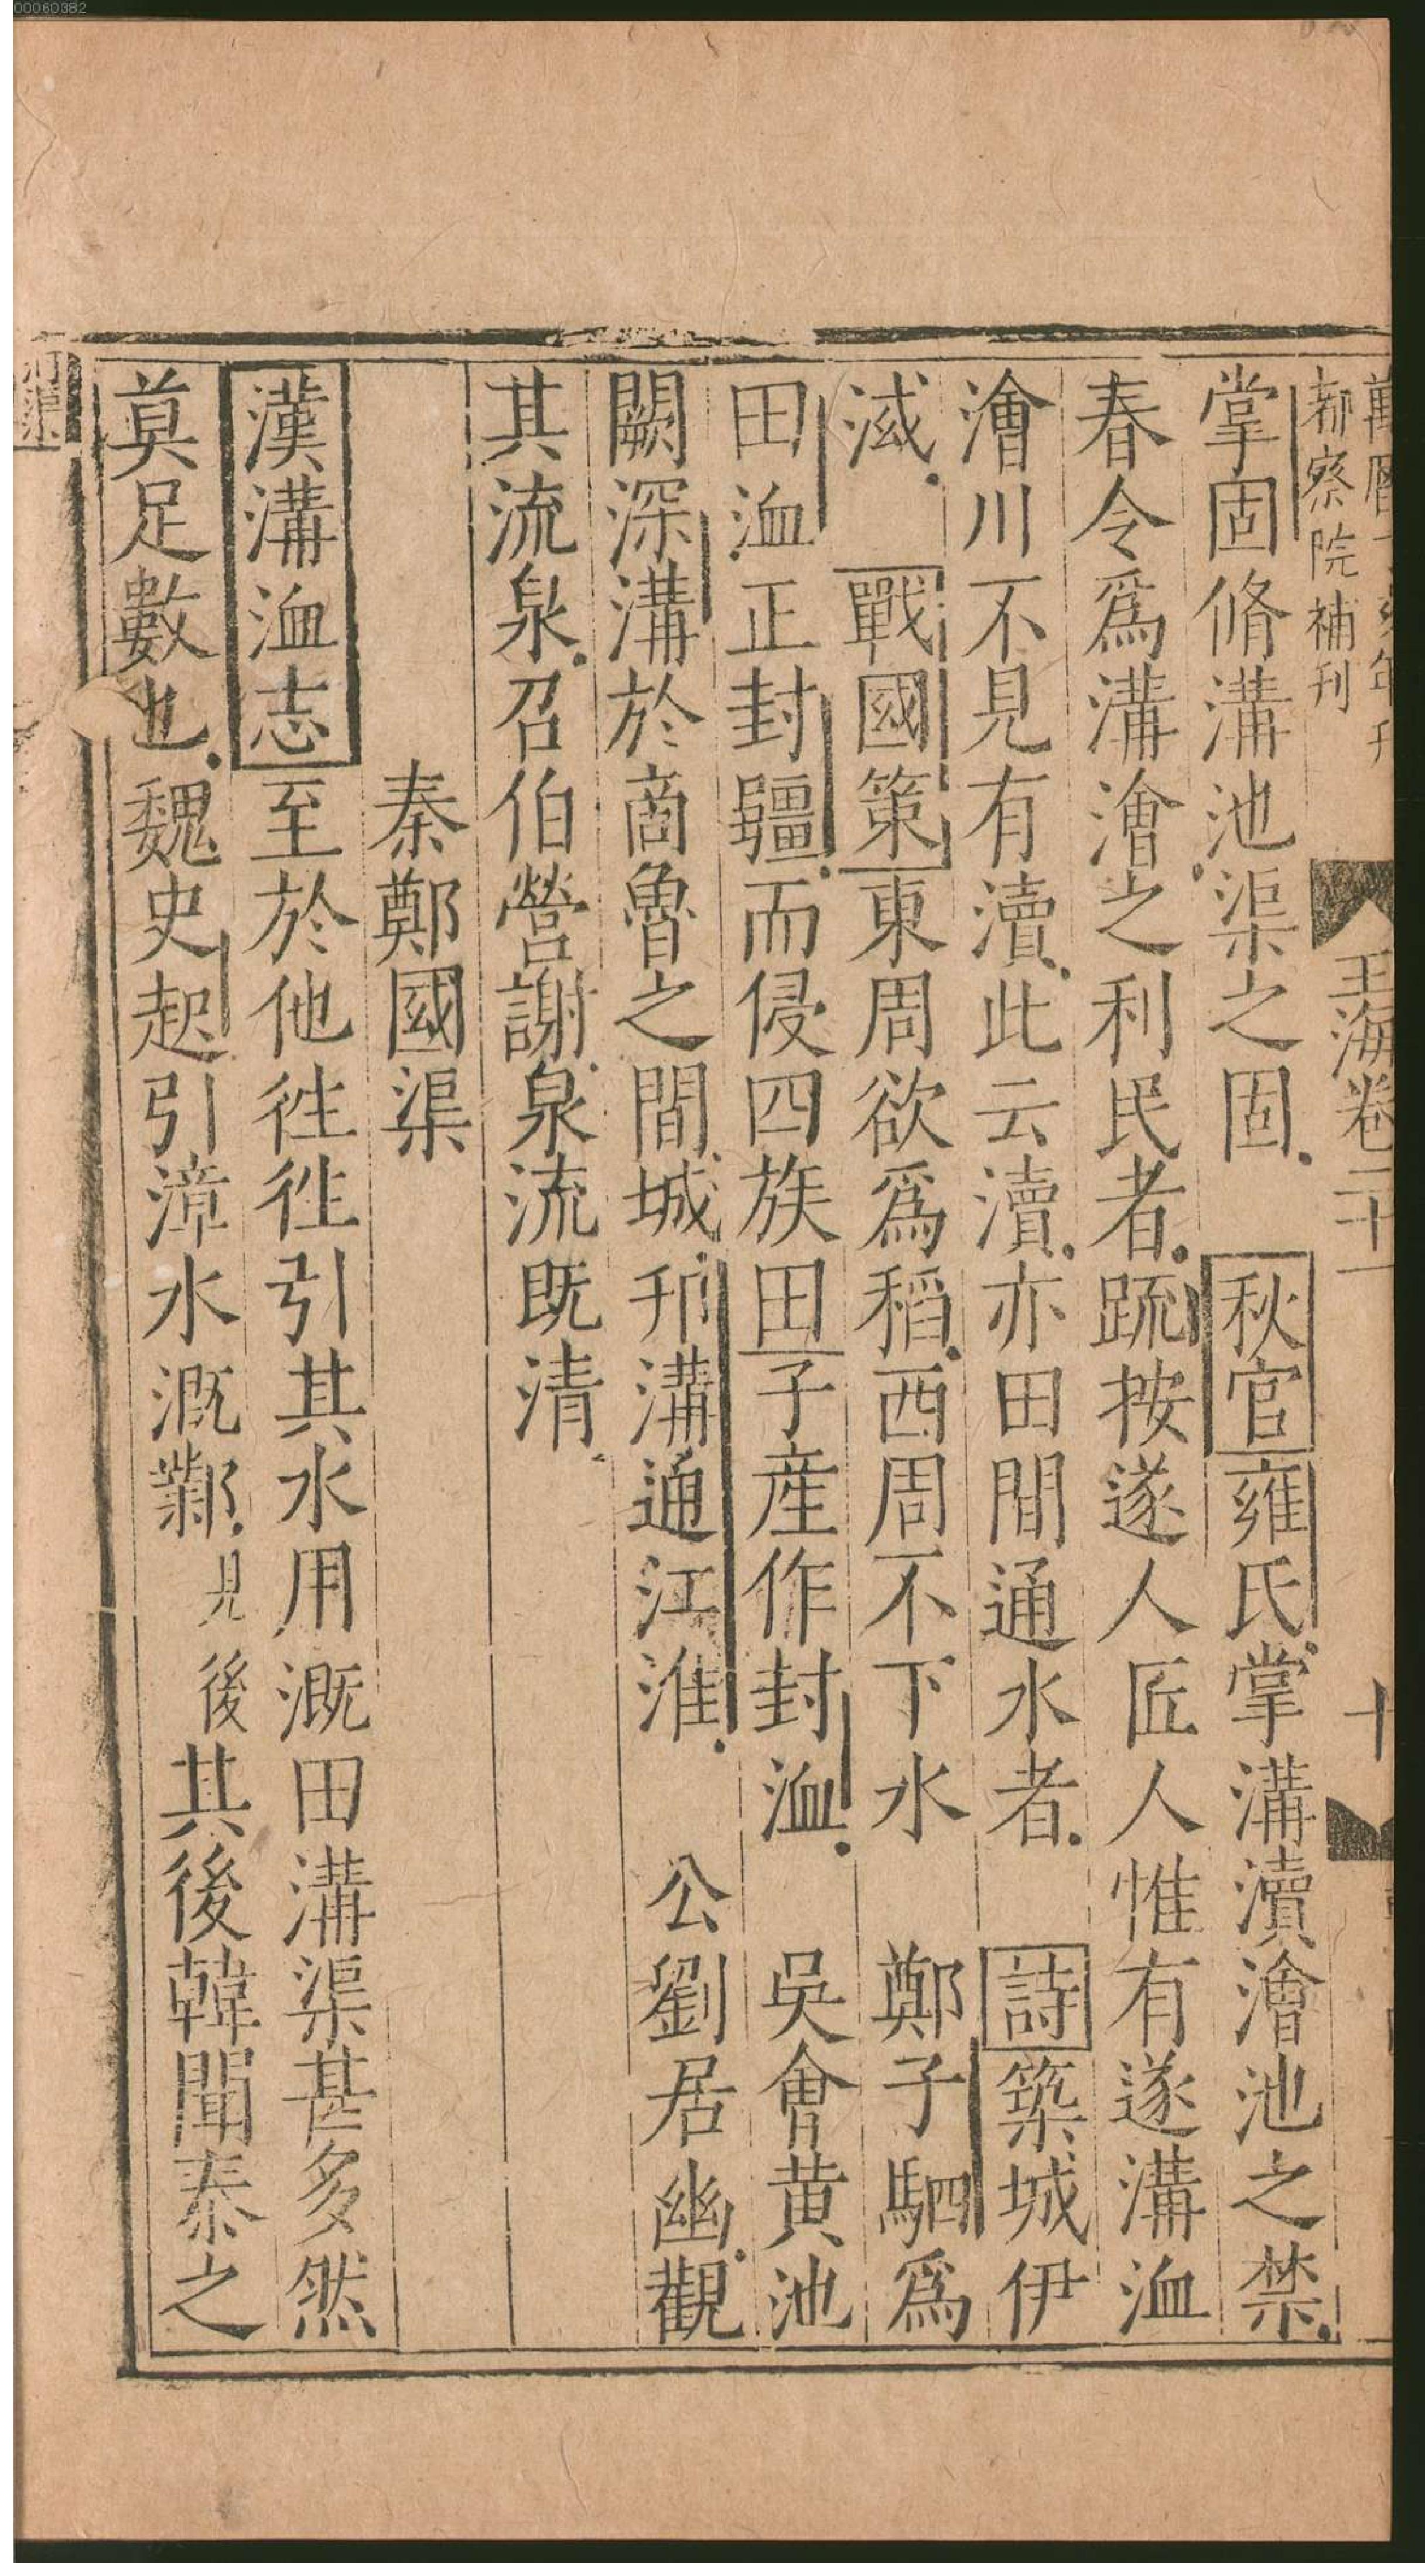 00060382
都察院補刊
玉海卷二十一
十
掌固脩溝池渠之固 秋官雍氏掌溝瀆澮池之禁
春令爲溝澮之利民者䟽按遂人匠人惟有遂溝洫
澮川不見有瀆此云瀆亦田間通水者 詩築城伊
淢 戰國策東周欲爲稻西周不下水 鄭子駟爲
田洫正封疆而侵四族田子産作封洫 吳會黄池
闕深溝於商魯之間城邗溝通江淮 公劉居豳觀
其流泉召伯營謝泉流既清
秦鄭國渠
漢溝洫志至於他徃徃引其水用溉田溝渠甚多然
莫足數也魏史起引漳水溉鄴見後其後韓聞秦之